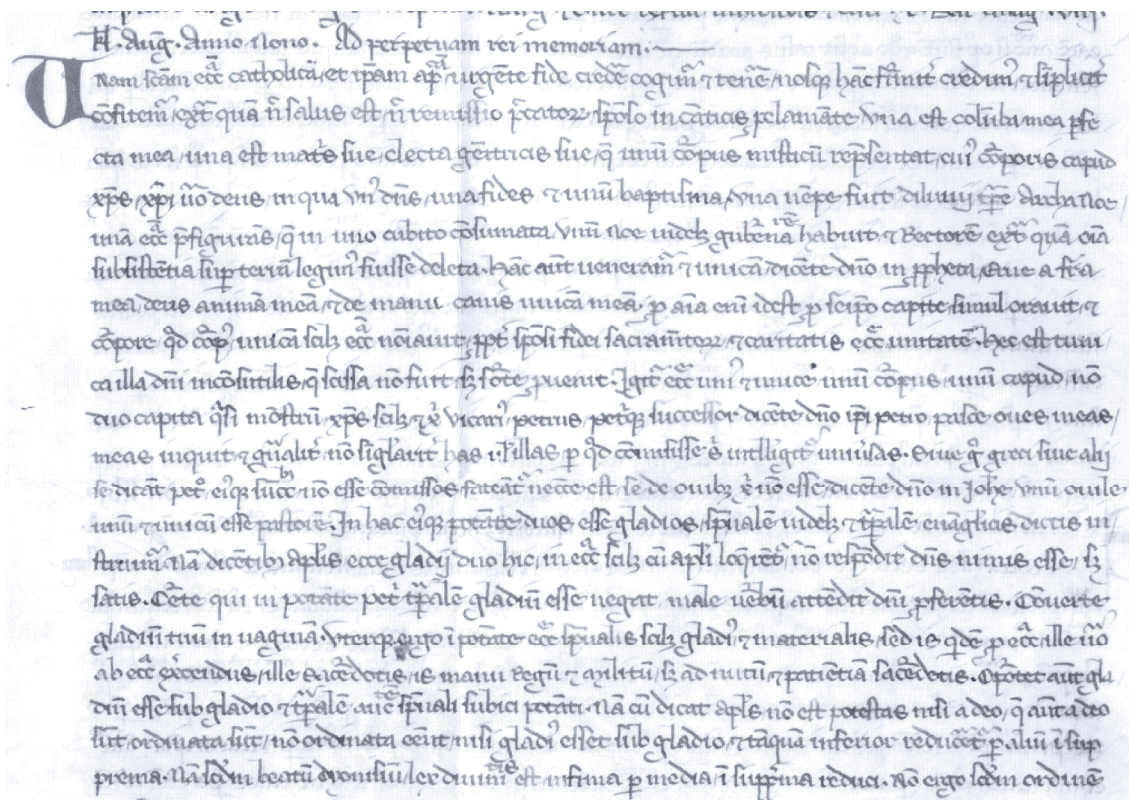 Kł Aug. Anno Nono. Ad perpetuam rei memoriam.
Unam sc̄am ecc̄a catholicā, et ip̄am ap̄ca urgēte fide credē cogimr̄ ⁊ tenē, nosq̨ hāc firmit̄ credim᷒, ⁊ simplicit̄
cōfitem̄, ext̄ quā n̄ salus est, n̄ remissio p̄catoꝝ, sp̄oso in cāticis ꝓclamāte Vna est colūba mea ꝑfe
cta mea, una est mat̄s sue, electa genit̄ricis sue, q̄ unū cōrpus misticū rep̄sentat, cui᷒ cōrporis capud
xp̄s, xp̄i ūo deus, in qua vn᷒ dn̄s, una fides, ⁊ unū baptisma, Vna nēpe fuit diluuij tp̄re Archa Noe,
unā ecc̄a p̄figurās, q̄ in uno cubito cōsumata. Vnū Noe uidelꝫ gub̄natorē habuit ⁊ Rectorē ext̄ quā oīa
subsistētia sup̄ terrā legim᷒ fuisse deleta. Hāc aut̄ ueneram̄ ⁊ unicā, dicēte dn̄o in ꝓpheta, Erue a framea
mea, deus animā meā, ⁊ de manu canis unicā meā. ꝓ aīa eni᷒ idest ꝓ seip̄o capite simul orauit, ⁊
cōrpore qd̄ cōrp᷒, unicā scilꝫ ecc̄a noīauit, ꝓpt̄ sp̄osi fidei sacramn̄toꝝ, ⁊ caritatis ecc̄e unitatē. Hec est tuni
ca illa dn̄i incōsutilis, q̄ scissa nō fuit sꝫ sorte ꝓuenit. Igit̄ ecc̄e uni᷒ ⁊ unice unū cōrpus, unū capud, nō
duo capita q̄si mōstrū, xp̄s scilꝫ ⁊ x̄ vicari᷒ petrus, pet̄q̨ successor dicēte dn̄o ip̄i petro, pasce oues meas,
meas inquit, ⁊ gn̄alit̄ nō sīglarit̄ has ł illas ꝑ qd̄ cōmisisse s̄ intelligit̄ uniūsas. Siue ḡ greci siue alij
se dicāt pet̄ ei᷒q̨ succ̄ibꝫ nō esse cōmissos fateāt̄ necc̄e est se de ouibꝫ x̄ nō esse, dicēte dn̄o in Joh̄e, vnū ouile
unū ⁊ unicū esse pastorē. In hac ei᷒q̨ potāte duos esse gladios, sp̄ualē uidelꝫ ⁊ tp̄alē, euāglicis dictis in
struim̄. Nā dicētibꝫ ap̄lis, ecce gladij duo hic, in ecc̄a scilꝫ cū ap̄li loq̄rēt̄, nō respōdit dn̄s nimis esse, sꝫ
satis. Cert̄e qui in potāte pet̄ tp̄alē gladiū esse negat male uerbū attēdit dn̄i ꝓferētis. Cōuerte
gladiū tuū in uaginā. Vterq̨ ergo ī potāte ecc̄e sp̄ualis scilꝫ gladi᷒ ⁊ materialis, sed is qdē ꝓ ecc̄a, ille ūo
ab ecc̄a exercendus, ille sacerdotis, is manu Regū ⁊ Militū, sꝫ ad nutū, ⁊ patientiā sacerdotis. Oportet aut̄ gla
diū esse sub gladio ⁊ tp̄alē auctē sp̄uali subici potāti. Nā cū dicat ap̄ls nō est potestas nisi a deo, q̄ aut̄ a deo
sūt, ordinata sūt, nō ordinata eēnt nisi gladi᷒ esset sub gladio, ⁊ tāquā inferior reducēt̄ ꝑ aliū ī sup
prema. Nā scd̄m beatū dyonisiū lex diuinitatis est infima ꝑ media ī supp̄ma reduci. Nō ergo scd̄m ordinē